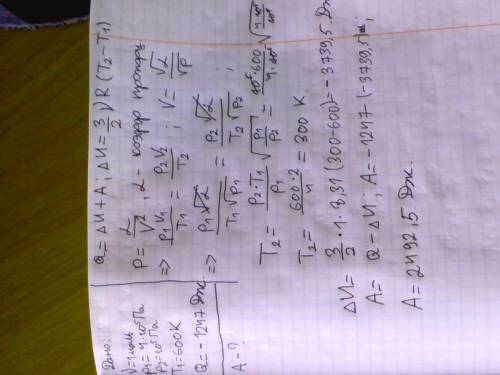 Дано:
ν=1моль
p₁=4·10⁵Па
p₂=10⁵Па
T₁=600K
Q=-1247 Дж
A-?
Q=ΔU+A; ΔU=3/2 νR(T₂-T₁)
P=α/V², α- коэфф пропорц.
=> p₁V₁/T₁ = p₂V₂/T₂ ; V=√α/√P ;
=> p₁√α/T₁√p₁ = p₂√α/T₂√p₂ ;
T₂= p₂·T₁/p₁ √p₁/p₂ = 10⁵·600/4·10⁵ √4·10⁵/10⁵
T₂= 600·2/4 = 300 K.
ΔU= 3/2·1·8,31(300-600)=-3739,5 Дж
A= Q-ΔU; A=-1247-(-3739,5);
A=2492,5 Дж.